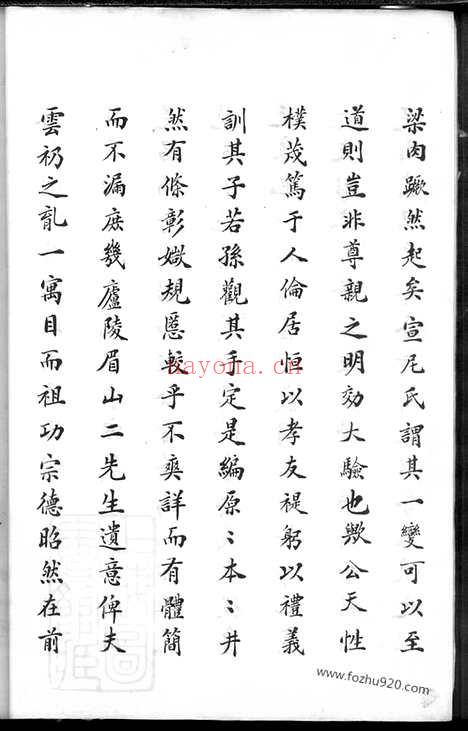 梁肉蹶然起矣宣尼氏謂其一變可以至
道則豈非尊親之明効大驗也歟公天性
樸茂篤于人倫居恒以孝友禔躬以禮義
訓其子若孫觀其手定是編原〻本〻井
然有條彰媺規慝較乎不爽詳而有體簡
而不漏庶幾廬陵眉山二先生遺意俾夫
雲礽之亂一寓目而祖功宗德昭然在前
nayona.cn
www.fozhu920.com